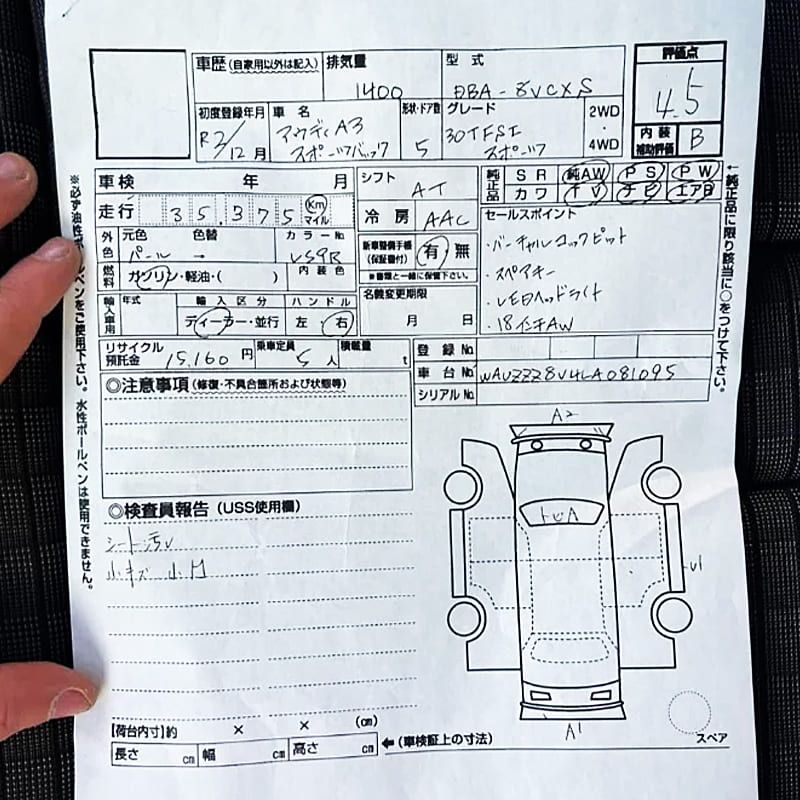 車歴（自家用以外は記入） 排気量 型式 評価点
1400 DBA-8VCXS 4.5
初度登録年月 車名 形状・ドア数 グレード 2WD・4WD
R2/12月 アウディA3 スポーツバック 5 30TFSI スポーツ
内装補助評価 B
車検 年 月 シフト AT
純正品 SR 純AW PS PW
カワ TV ナビ エアB
走行 35,375 Km マイル
冷房 AAC
セールスポイント
・バーチャルコックピット
・スペアキー
・LEDヘッドライト
・18インチAW
外色 元色 色替 カラーNo
パール → LS9R
新車整備手帳（保証書付） 有・無
※書類と一緒に保管下さい。
燃料 ガソリン・軽油・（ ） 内装色
名義変更期限 月 日
輸入車用 年式 輸入区分 ハンドル
ディーラー・並行 左・右
リサイクル預託金 15,160円 乗車定員 5人 積載量 t
登録No
車台No WAUZZZ8V4LA081095
シリアルNo
◎注意事項（修復・不具合箇所および状態等）
◎検査員報告（USS使用欄）
シート汚レ
小キズ 小凹
A2
トビA
A1
スペア
【荷台内寸】約 × × （cm）
長さ cm 幅 cm 高さ cm ←（車検証上の寸法）
※必ず油性ボールペンをご使用下さい。水性ボールペンは使用できません。
←純正品に限り該当に○をつけて下さい。